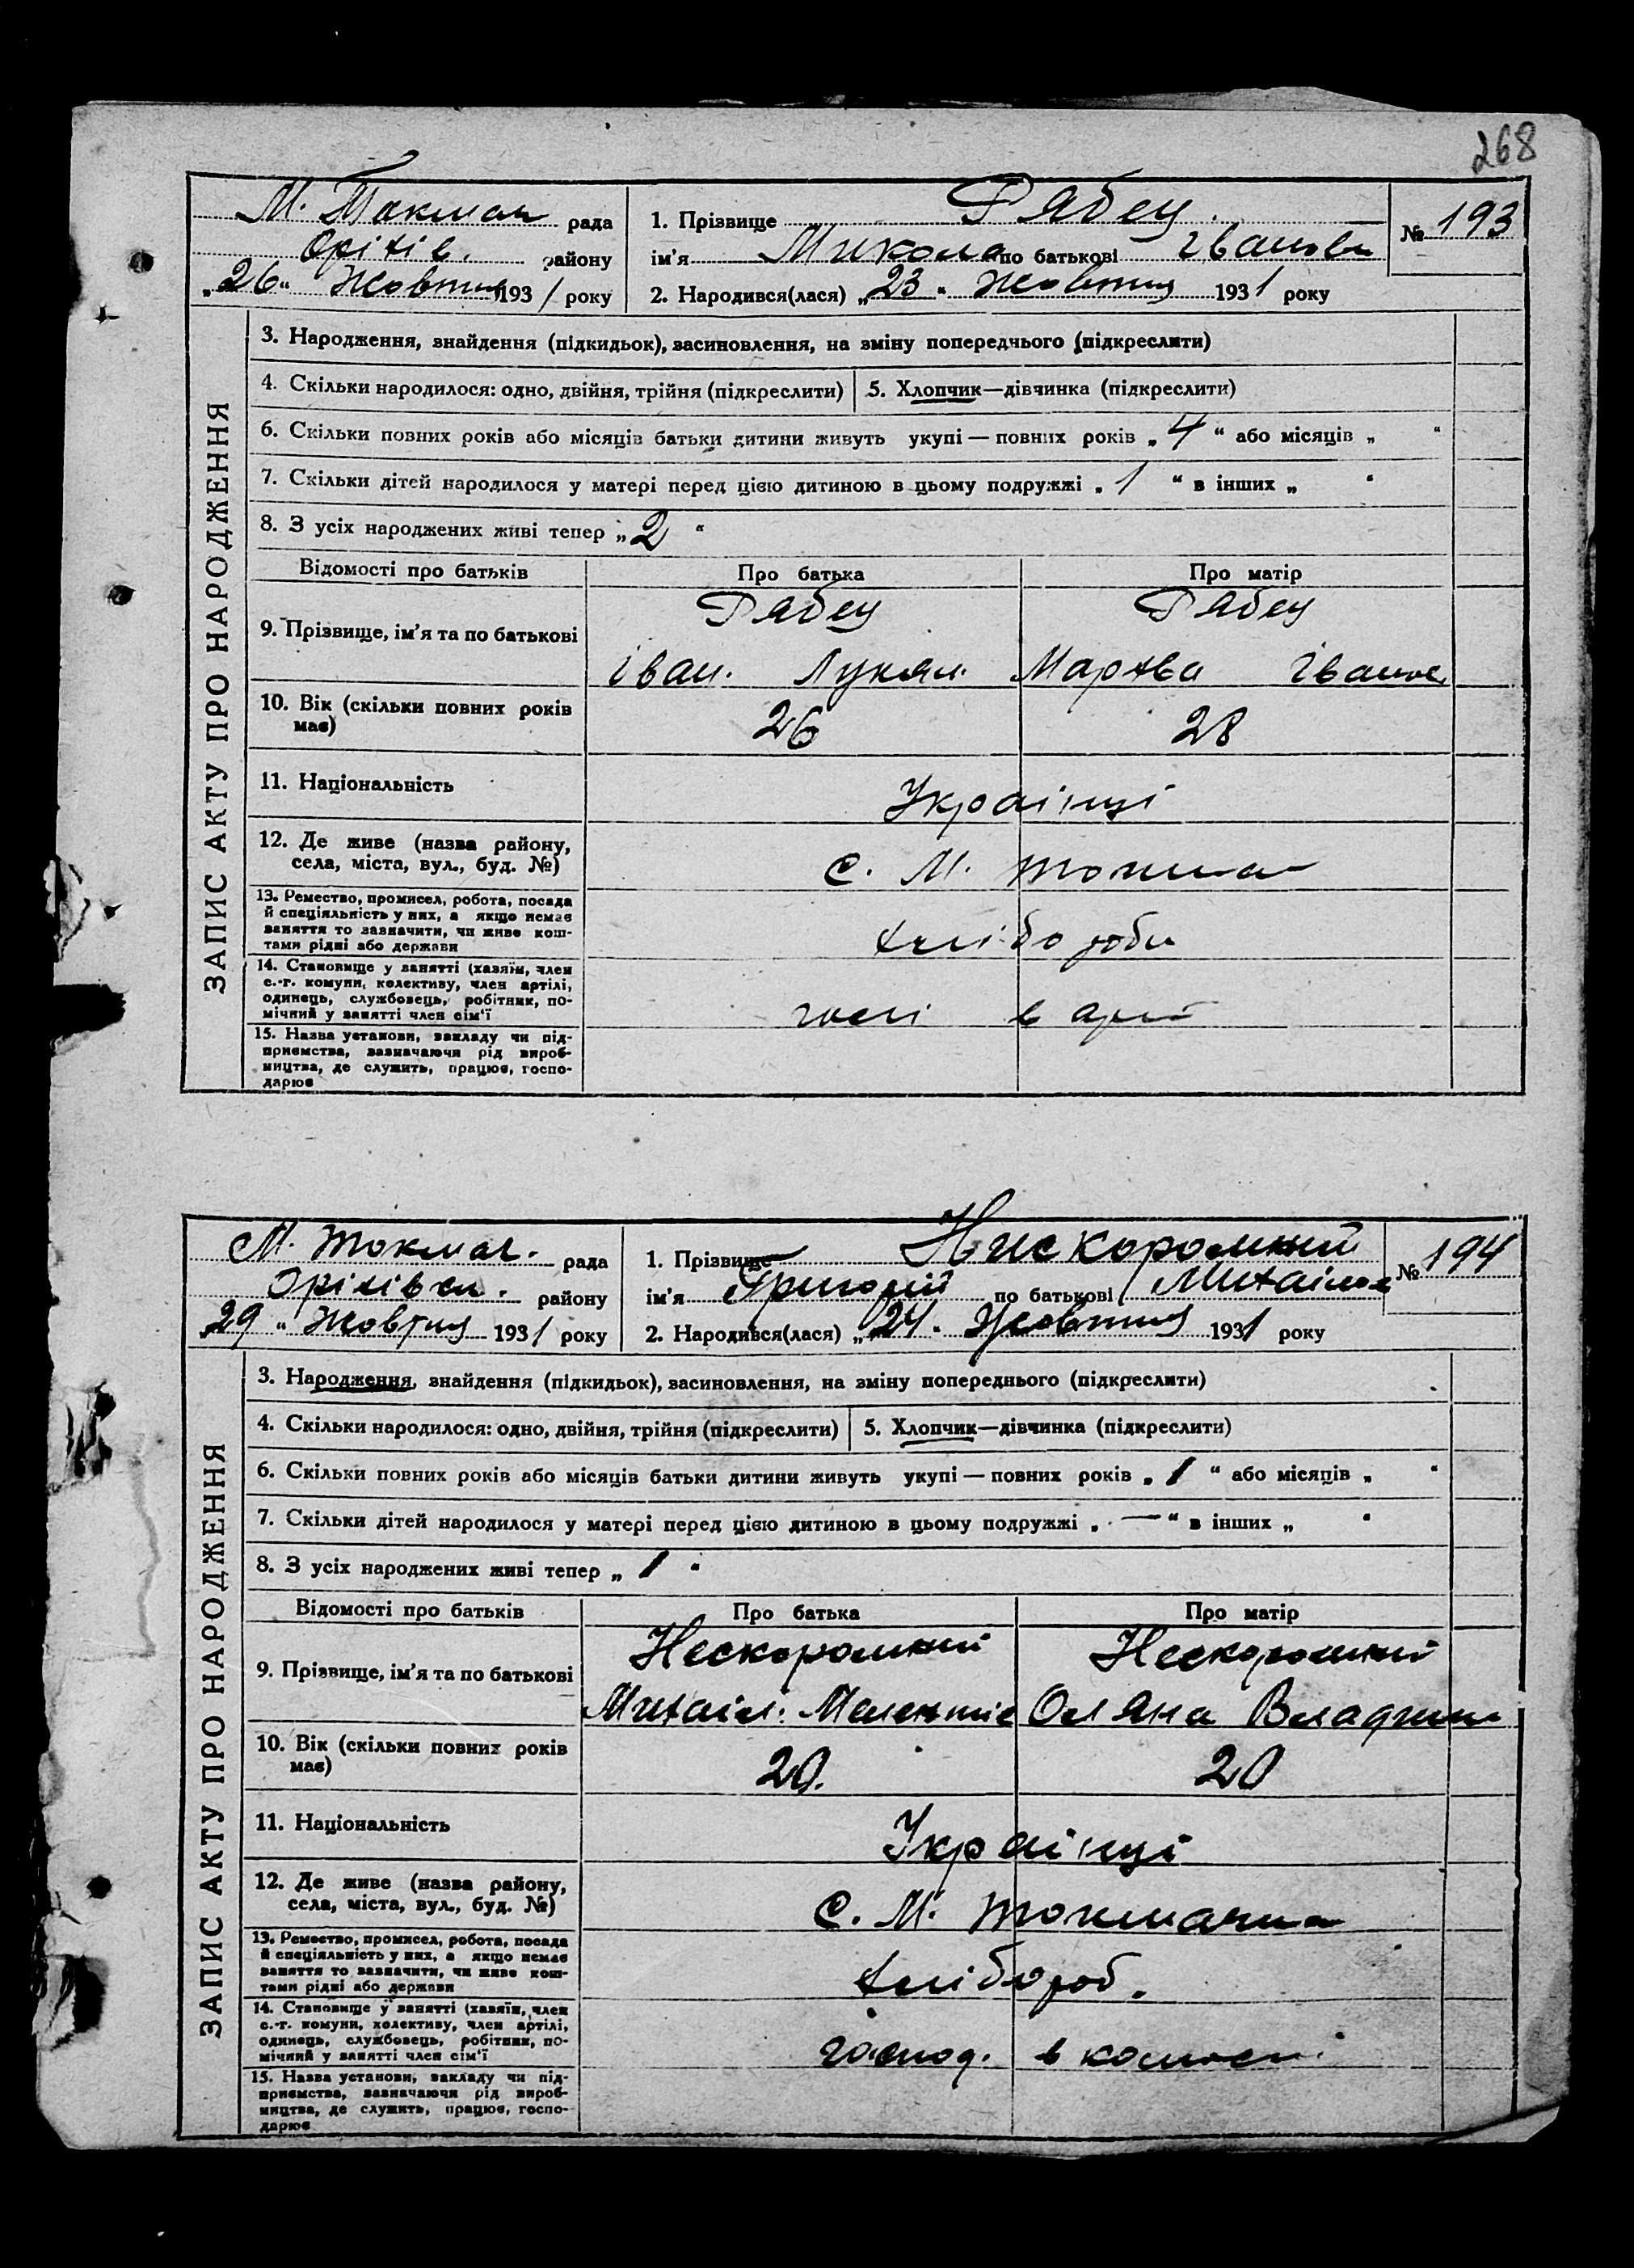 268
М. Токмач рада
Оріхів. району
„26“ Жовтня 1931 року
1. Прізвище Рябец
ім’я Микола по батькові Іванови
2. Народився(лася) „23“ Жовтня 1931 року
№ 193
ЗАПИС АКТУ ПРО НАРОДЖЕННЯ
3. Народження, знайдення (підкидьок), засиновлення, на зміну попереднього (підкреслити)
4. Скільки народилося: одно, двійня, трійня (підкреслити) 5. Хлопчик—дівчинка (підкреслити)
6. Скільки повних років або місяців батьки дитини живуть укупі — повних років „4“ або місяців „ “
7. Скільки дітей народилося у матері перед цією дитиною в цьому подружжі „1“ в інших „ “
8. З усіх народжених живі тепер „2“
Відомості про батьків Про батька Про матір
Рябец Рябец
9. Прізвище, ім’я та по батькові
Іван. Лукян. Мархва Іванов
10. Вік (скільки повних років
має) 26 28
11. Національність Украінці
12. Де живе (назва району,
села, міста, вул., буд. №) с. М. Токма
13. Ремество, промисел, робота, посада
й спеціяльність у них, а якщо немає
заняття то зазначити, чи живе кош-
тами рідні або держави
хлібороби
14. Становище у занятті (хазяїн, член
с.-г. комуни, колективу, член артілі,
одинець, службовець, робітник, по-
мічний у занятті член сім’ї
в
15. Назва установи, закладу чи під-
приємства, зазначаючи рід вироб-
ництва, де служить, працює, госпо-
дарює
М. Токмач. рада
Оріхівськ. району
„29“ Жовтня 1931 року
1. Прізвище Нискоромний
ім’я Григорій по батькові Михайлов
2. Народився(лася) „24“ Жовтня 1931 року
№ 194
ЗАПИС АКТУ ПРО НАРОДЖЕННЯ
3. Народження, знайдення (підкидьок), засиновлення, на зміну попереднього (підкреслити)
4. Скільки народилося: одно, двійня, трійня (підкреслити) 5. Хлопчик—дівчинка (підкреслити)
6. Скільки повних років або місяців батьки дитини живуть укупі — повних років „1“ або місяців „ “
7. Скільки дітей народилося у матері перед цією дитиною в цьому подружжі „—“ в інших „ “
8. З усіх народжених живі тепер „1“
Відомості про батьків Про батька Про матір
Нескоромний Нескоромний
9. Прізвище, ім’я та по батькові
Михаіл. Мелентіє Оляна Владим
10. Вік (скільки повних років
має) 20. 20
11. Національність Украінці
12. Де живе (назва району,
села, міста, вул., буд. №) с. М. Токмачка
13. Ремество, промисел, робота, посада
й спеціяльність у них, а якщо немає
заняття то зазначити, чи живе кош-
тами рідні або держави
хлібороб.
14. Становище у занятті (хазяїн, член
с.-г. комуни, колективу, член артілі,
одинець, службовець, робітник, по-
мічний у занятті член сім’ї
господ. в
15. Назва установи, закладу чи під-
приємства, зазначаючи рід вироб-
ництва, де служить, працює, госпо-
дарює